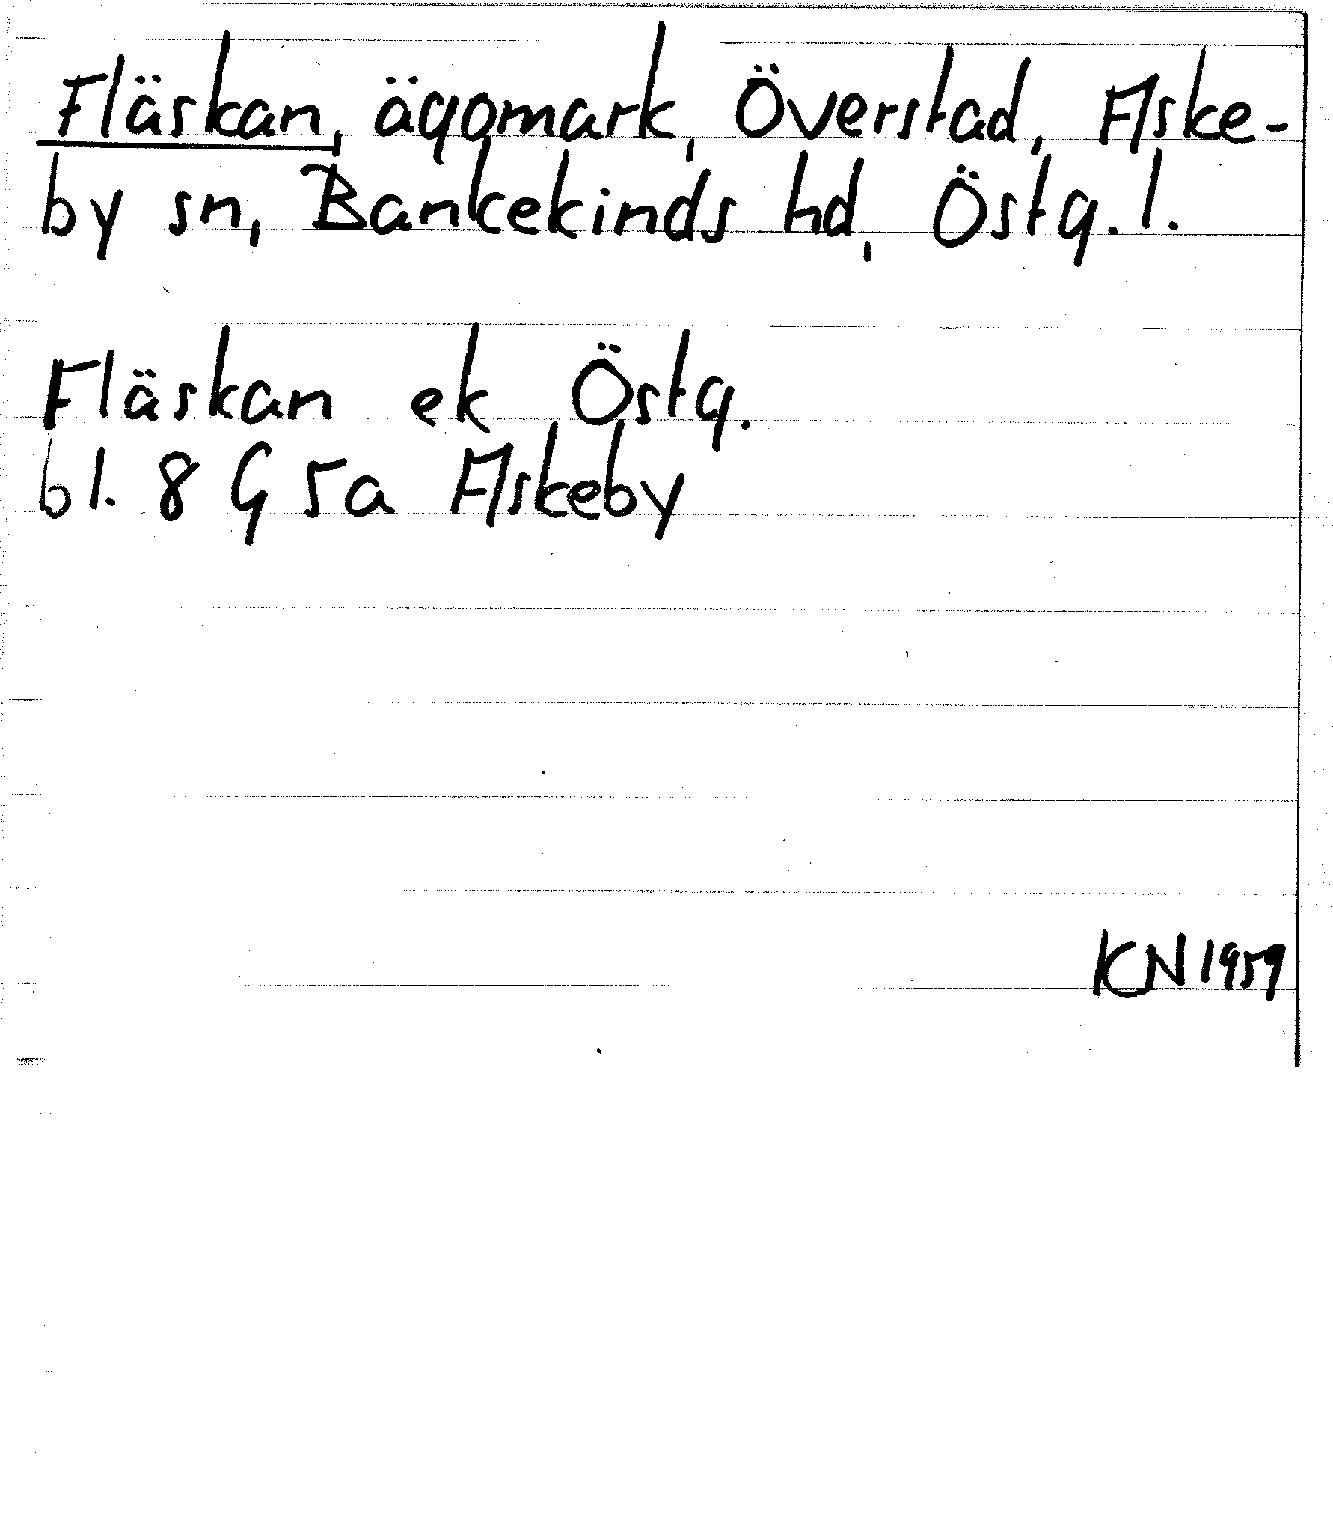 Fläskan, ägomark, Överstad, Aske-
by sn, Bankekinds hd, Östg. l.
Fläskan ek Östg.
bl. 8 G 5a Askeby
KN 1959